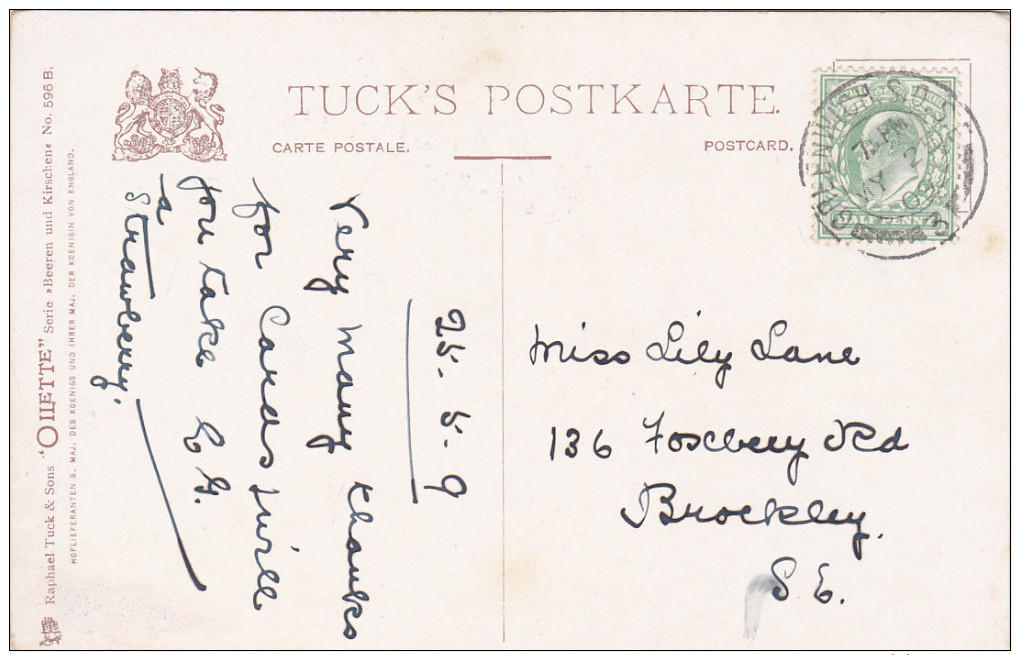 TUCK'S POSTKARTE.
CARTE POSTALE.
POSTCARD.
Raphael Tuck & Sons "OILETTE" Serie »Beeren und Kirschen« No. 596 B.
HOFLIEFERANTEN S. MAJ. DES KOENIGS UND IHRER MAJ. DER KOENIGIN VON ENGLAND.
25.5.9
Very many thanks
for Cards will
you take
a
Strawberry.
Miss Lily Lane
136 Foxbery Rd
Brockley.
S.E.
HALF PENNY
7 PM
MY 2